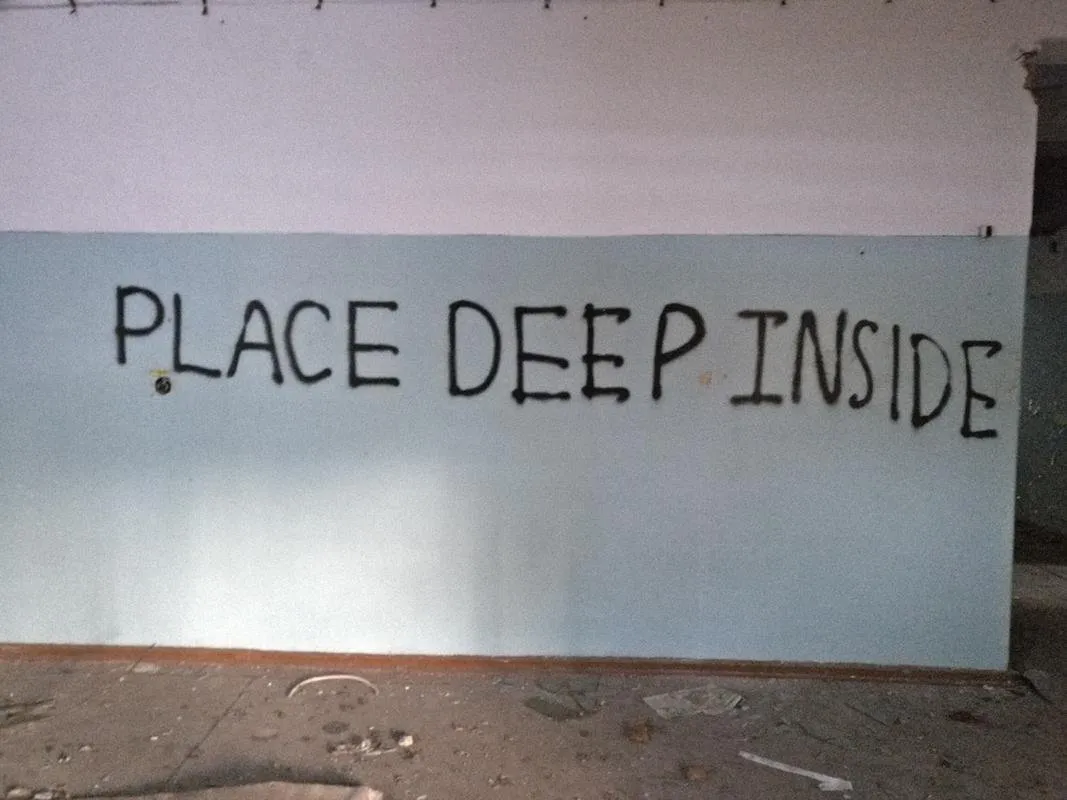 PLACE DEEP INSIDE